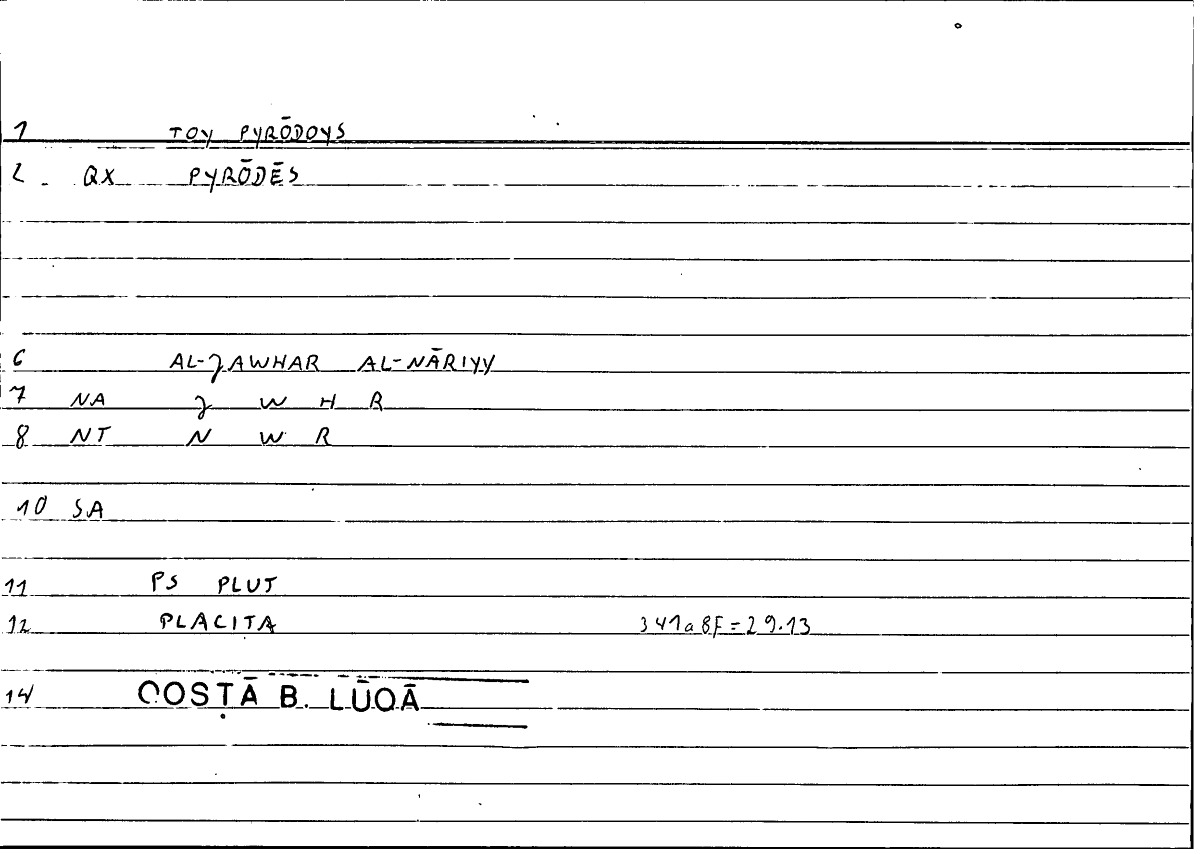 1 TOY PYRŌDOYS
2 QX PYRŌDĒS
6 AL-ǦAWHAR AL-NĀRIYY
7 NA Ǧ W H R
8 NT N W R
10 SA
11 PS PLUT
12 PLACITA 341a8F=29.13
14 QOSṬĀ B. LŪQĀ